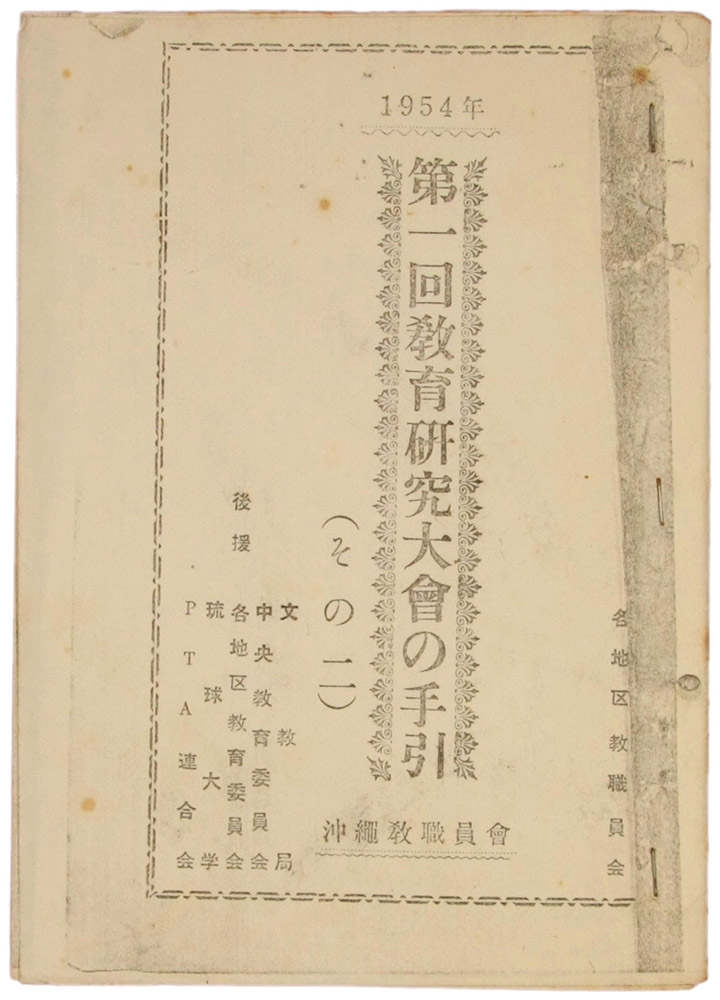 1954年
各地区教職員会
第一回教育研究大會の手引
(その二)
沖繩教職員會
後援
文教局
中央教育委員会
各地区教育委員会
琉球大学
PTA連合会